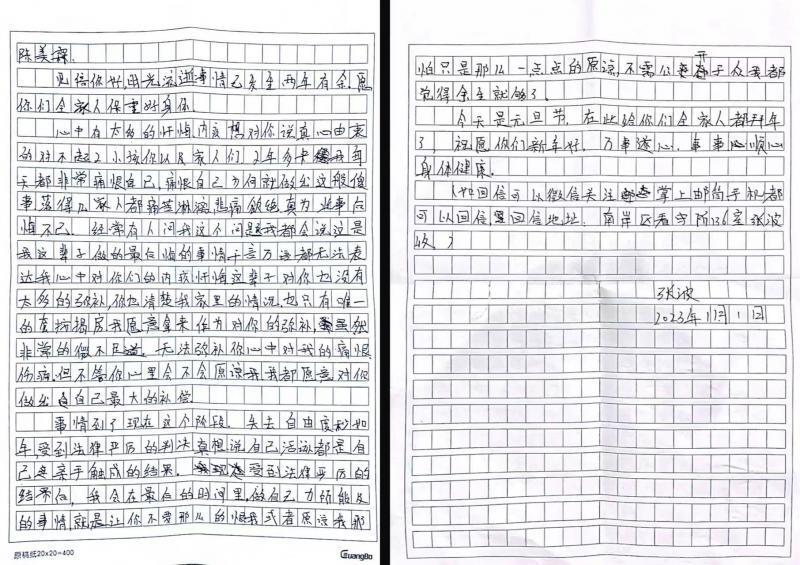 陈美霖:
见信你好,时光流逝事情已关至两年有余愿
你们全家人保重好身体
心中有太多的忏悔内疚想对你说真心由衷
的对不起2小孩你以及家人们2年多来我每
天都非常痛恨自己,痛恨自己为何就做出这般傻
事落得几家人都痛苦淋漓悲痛欲绝真为此事后
悔不已.经常有人问我这个问题我都会说这是
我这辈子做的最后悔的事情千言万语都无法表
达我心中对你们的内疚忏悔这辈子对你也没有
太多的弥补,你也清楚我家里的情况也只有唯一
的套房我愿意拿来作为对你的弥补,虽然
非常的微不足道.无法弥补你心中对我的痛恨
伤痛,但不管你心里会不会愿谅我我都愿意对你
做出自己最大的补偿.
事情到了现在这个阶段.失去自由度秒如
年受到法律严厉的判决真想说自己活该都是自
己亲手触成的结果.受到法律严厉的
结果后,我会在最后的时间里,做自己力所能及
的事情就是让你不要那么的恨我或者原谅我那
原稿纸20×20=400
GuangBo
怕只是那么一点点的原谅,不需公开于众我都
觉得余生就够了.
今天是元旦节,在此给你们全家人都拜年
了,祝愿你们新年好.万事遂心.事事顺心
身体健康.
(如回信可以微信关注掌上邮局手机都
可以回信回信地址:南岸区看守所136室张波
收.)
张波
2023年1月1日